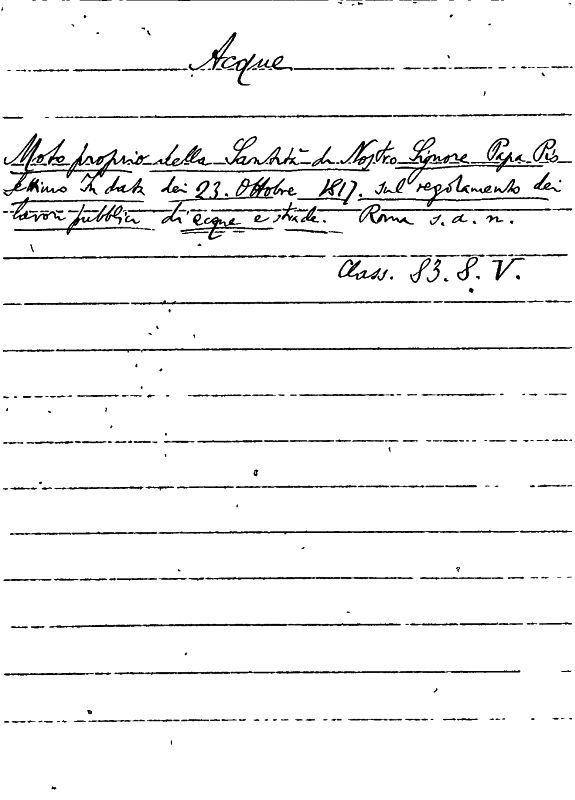 Acque
Moto proprio della Santità di Nostro Signore Papa Pio
Settimo In data dei 23. Ottobre 1817. sul regolamento dei
lavori pubblici di acque e strade. Roma s. a. n.
Class. 83. 8. V.